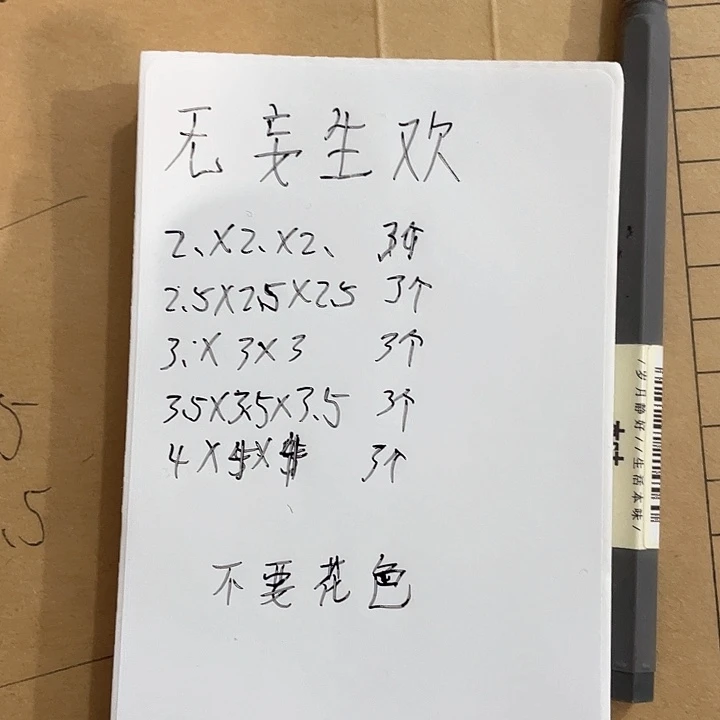 无妄生欢
2、X2、X2、 3个
2.5X2.5X2.5 3个
3、X3X3 3个
35X3.5X3.5 3个
4X4X4 3个
不要花色
/岁月静好//生活本味/